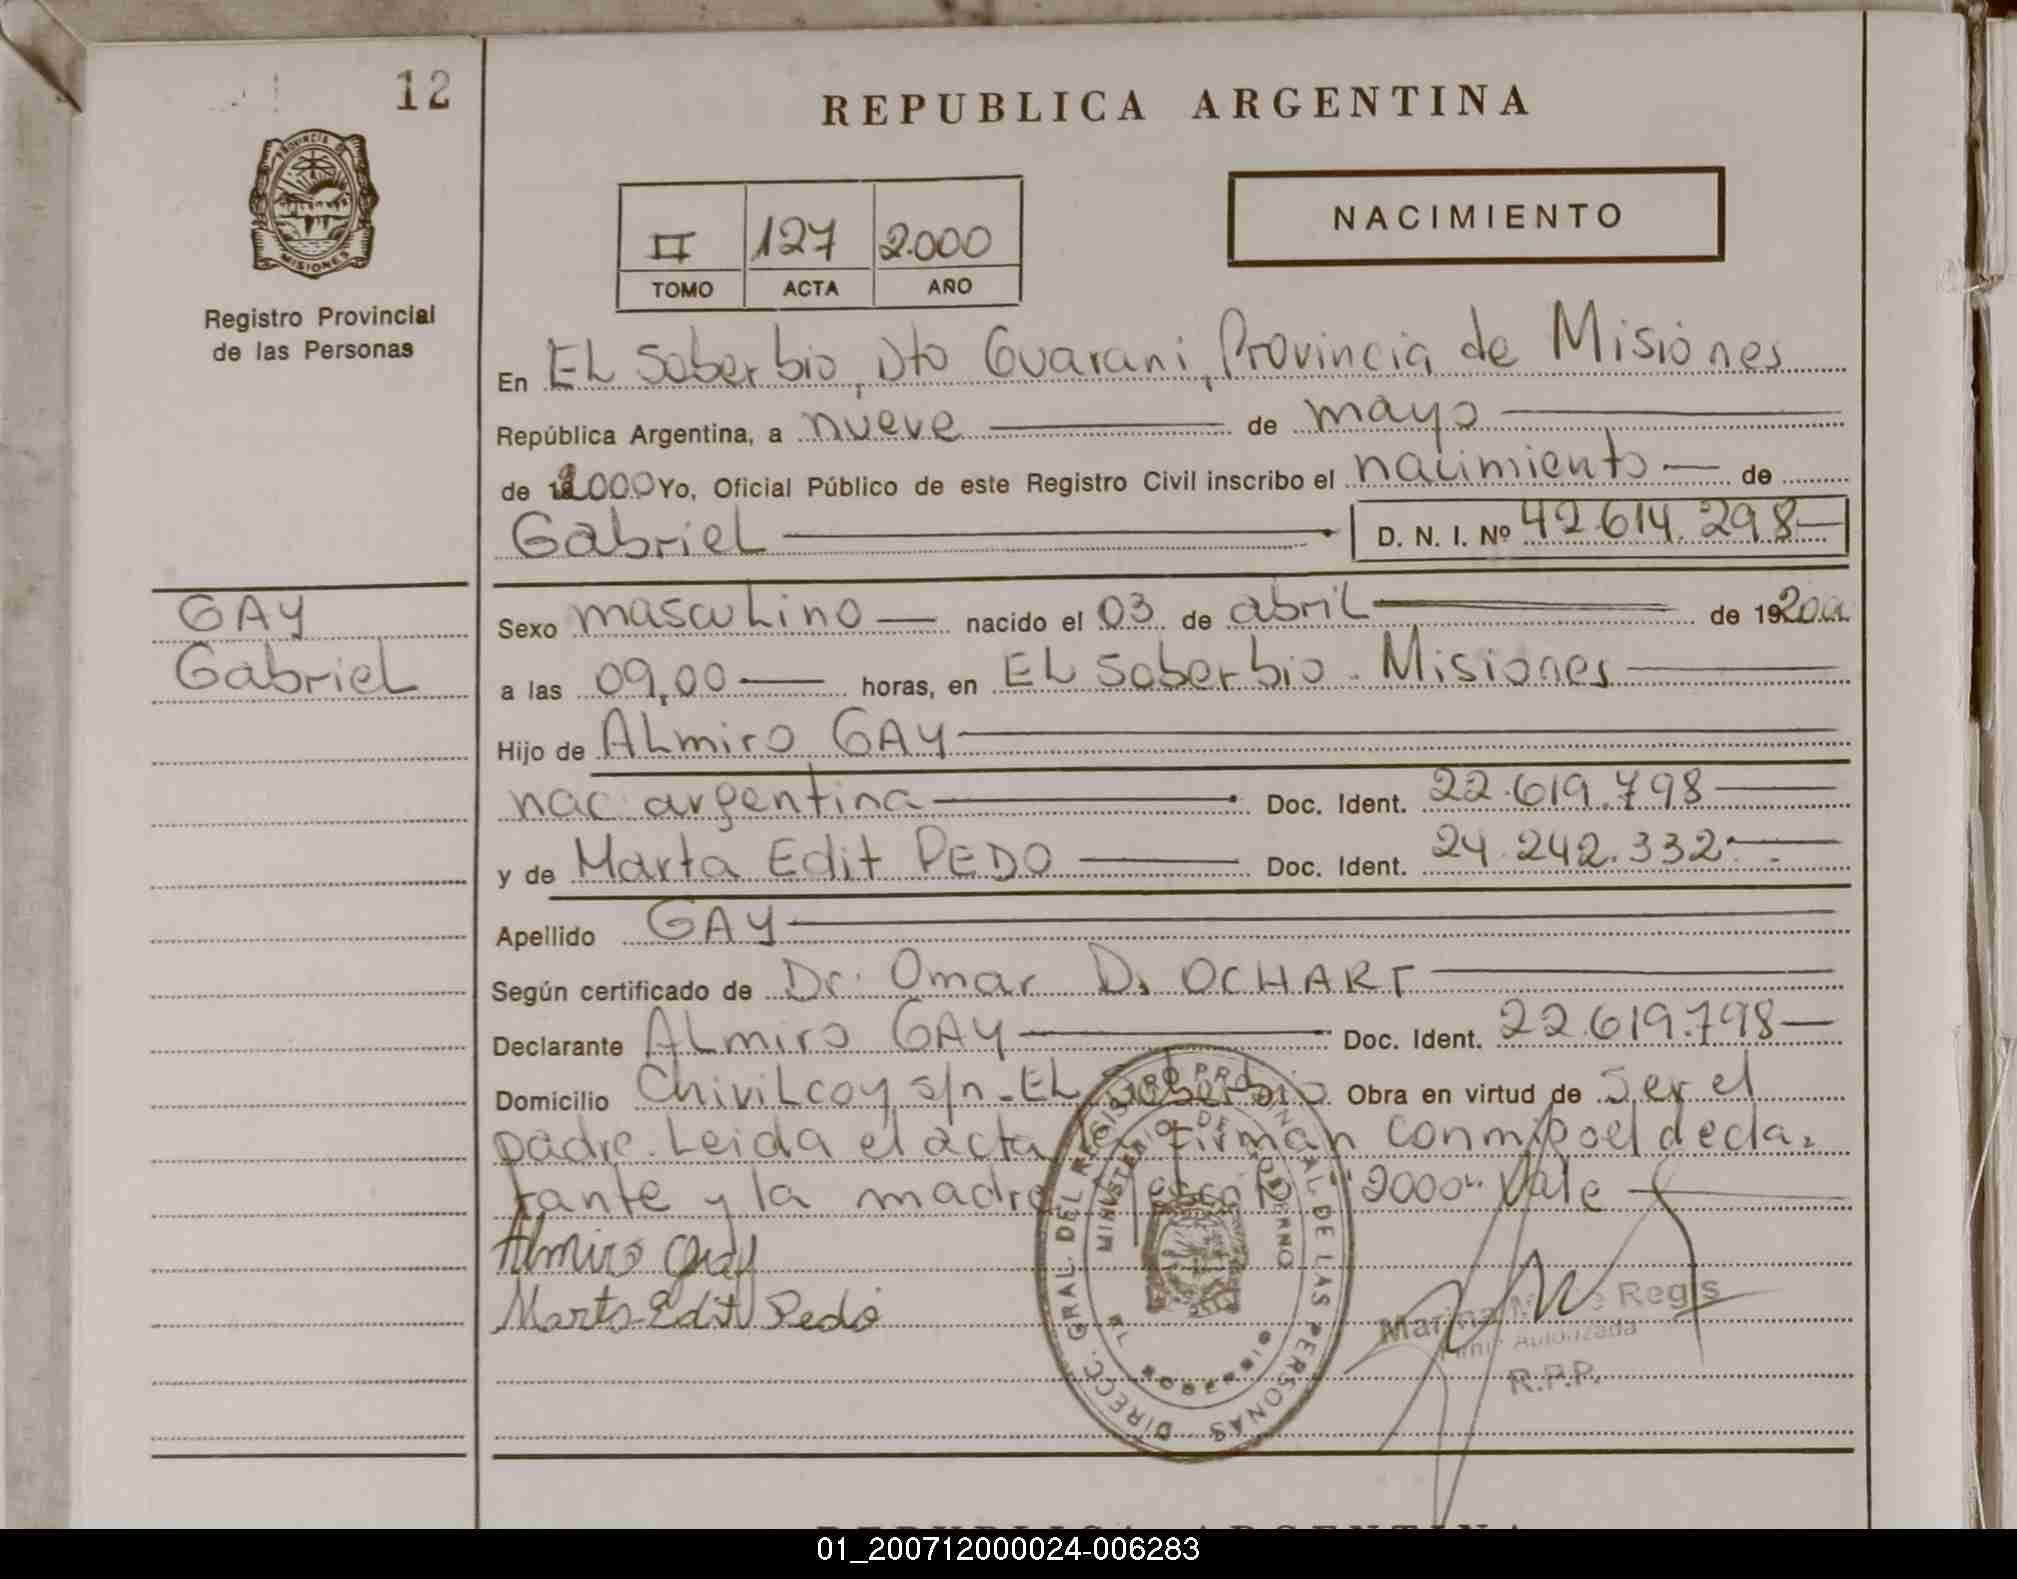 12
REPUBLICA ARGENTINA
PROVINCIA DE
MISIONES
Registro Provincial
de las Personas
II 127 2.000
TOMO ACTA AÑO
NACIMIENTO
En EL Soberbio, Dto Guarani, Provincia de Misiones
República Argentina, a nueve de mayo
de 2000 Yo, Oficial Público de este Registro Civil inscribo el nacimiento de
Gabriel D. N. I. Nº 42.614.298
GAY
Gabriel
Sexo masculino nacido el 03 de abril de 19 2000
a las 09,00 horas, en EL Soberbio - Misiones
Hijo de ALmiro GAY
nac argentina Doc. Ident. 22.619.798
y de Marta Edit PEDO Doc. Ident. 24.242.332
Apellido GAY
Según certificado de Dr. Omar D. OCHART
Declarante ALmiro GAY Doc. Ident. 22.619.798
Domicilio ChiviLcoy s/n - EL Soberbio Obra en virtud de ser el
padre. Leida el acta la firman conmigo el decla-
rante y la madre "2000" Vale
Almiro Gay
Marta Edit Pedó
DIRECC. GRAL. DEL REGISTRO PROVINCIAL DE LAS PERSONAS
MINISTERIO DE GOBIERNO
EL SOBERBIO
Marina Regis
Firma Autorizada
R.P.P.
REPUBLICA ARGENTINA
01_200712000024-006283